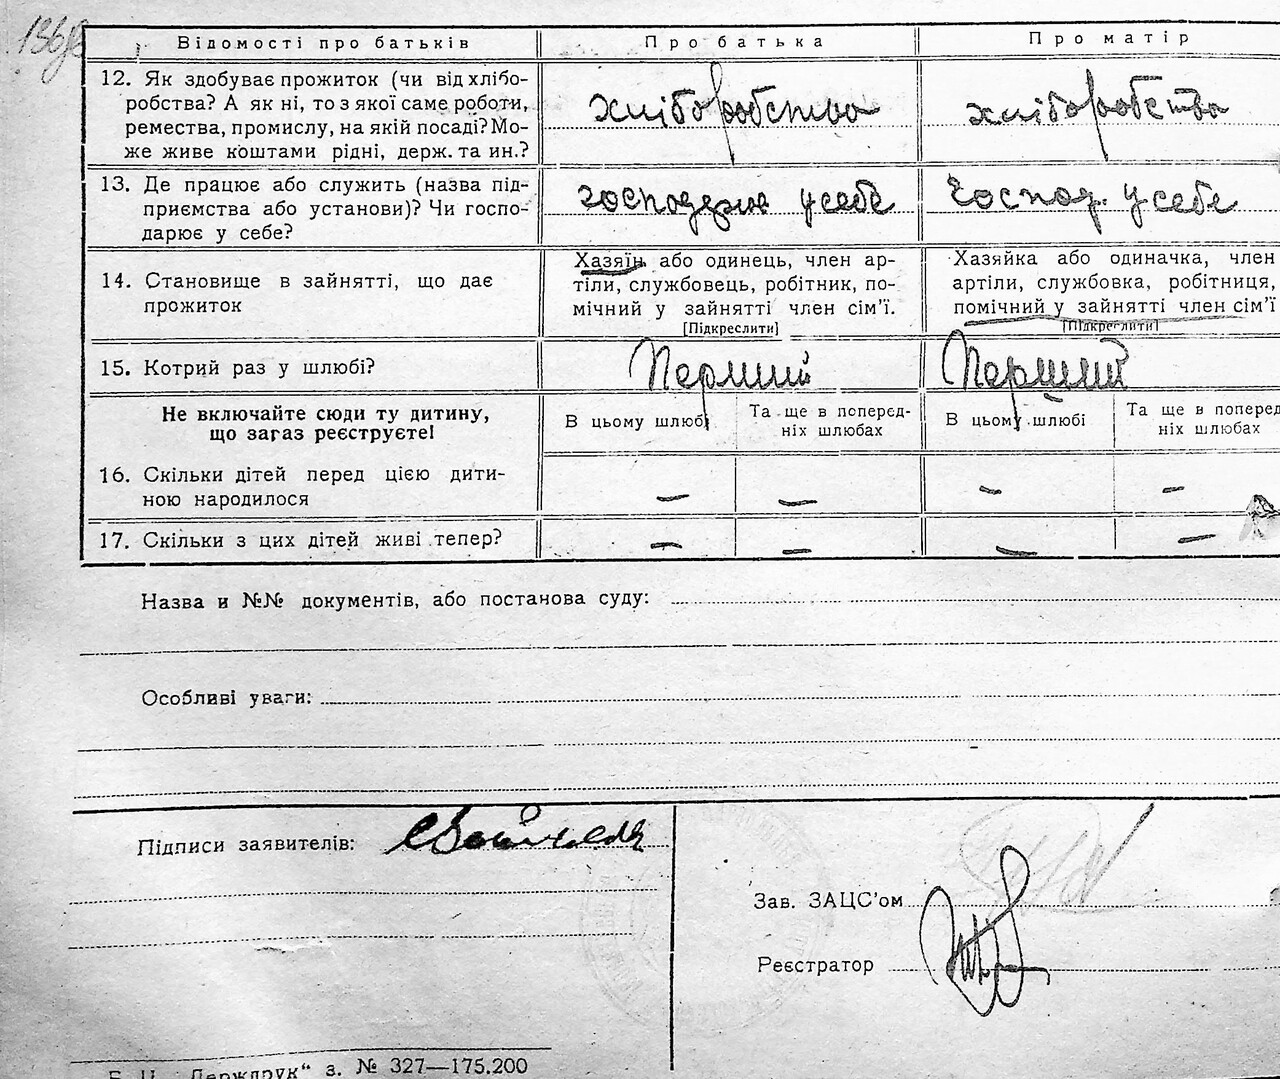 Відомості про батьків Про батька Про матір
12. Як здобуває прожиток (чи від хлібо-
робства? А як ні, то з якої саме роботи,
ремества, промислу, на якій посаді? Мо-
же живе коштами рідні, держ. та ин.?
хліборобство хліборобство
13. Де працює або служить (назва під-
приємства або установи)? Чи госпо-
дарює у себе?
у себе Господ. у себе
14. Становище в зайнятті, що дає
прожиток
Хазяїн або одинець, член ар-
тіли, службовець, робітник, по-
мічний у зайнятті член сім'ї.
[Підкреслити]
Хазяйка або одиначка, член
артіли, службовка, робітниця,
помічний у зайнятті член сім'ї
[Підкреслити]
15. Котрий раз у шлюбі? Перший Перший
Не включайте сюди ту дитину,
що загаз реєструєте!
В цьому шлюбі
Та ще в поперед-
ніх шлюбах
В цьому шлюбі
Та ще в поперед
ніх шлюбах
16. Скільки дітей перед цією дити-
ною народилося
— — — —
17. Скільки з цих дітей живі тепер? — — — —
Назва и №№ документів, або постанова суду:
Особливі уваги:
Підписи заявителів:
Зав. ЗАЦС'ом
Реєстратор
„Держдрук“ з. № 327—175.200